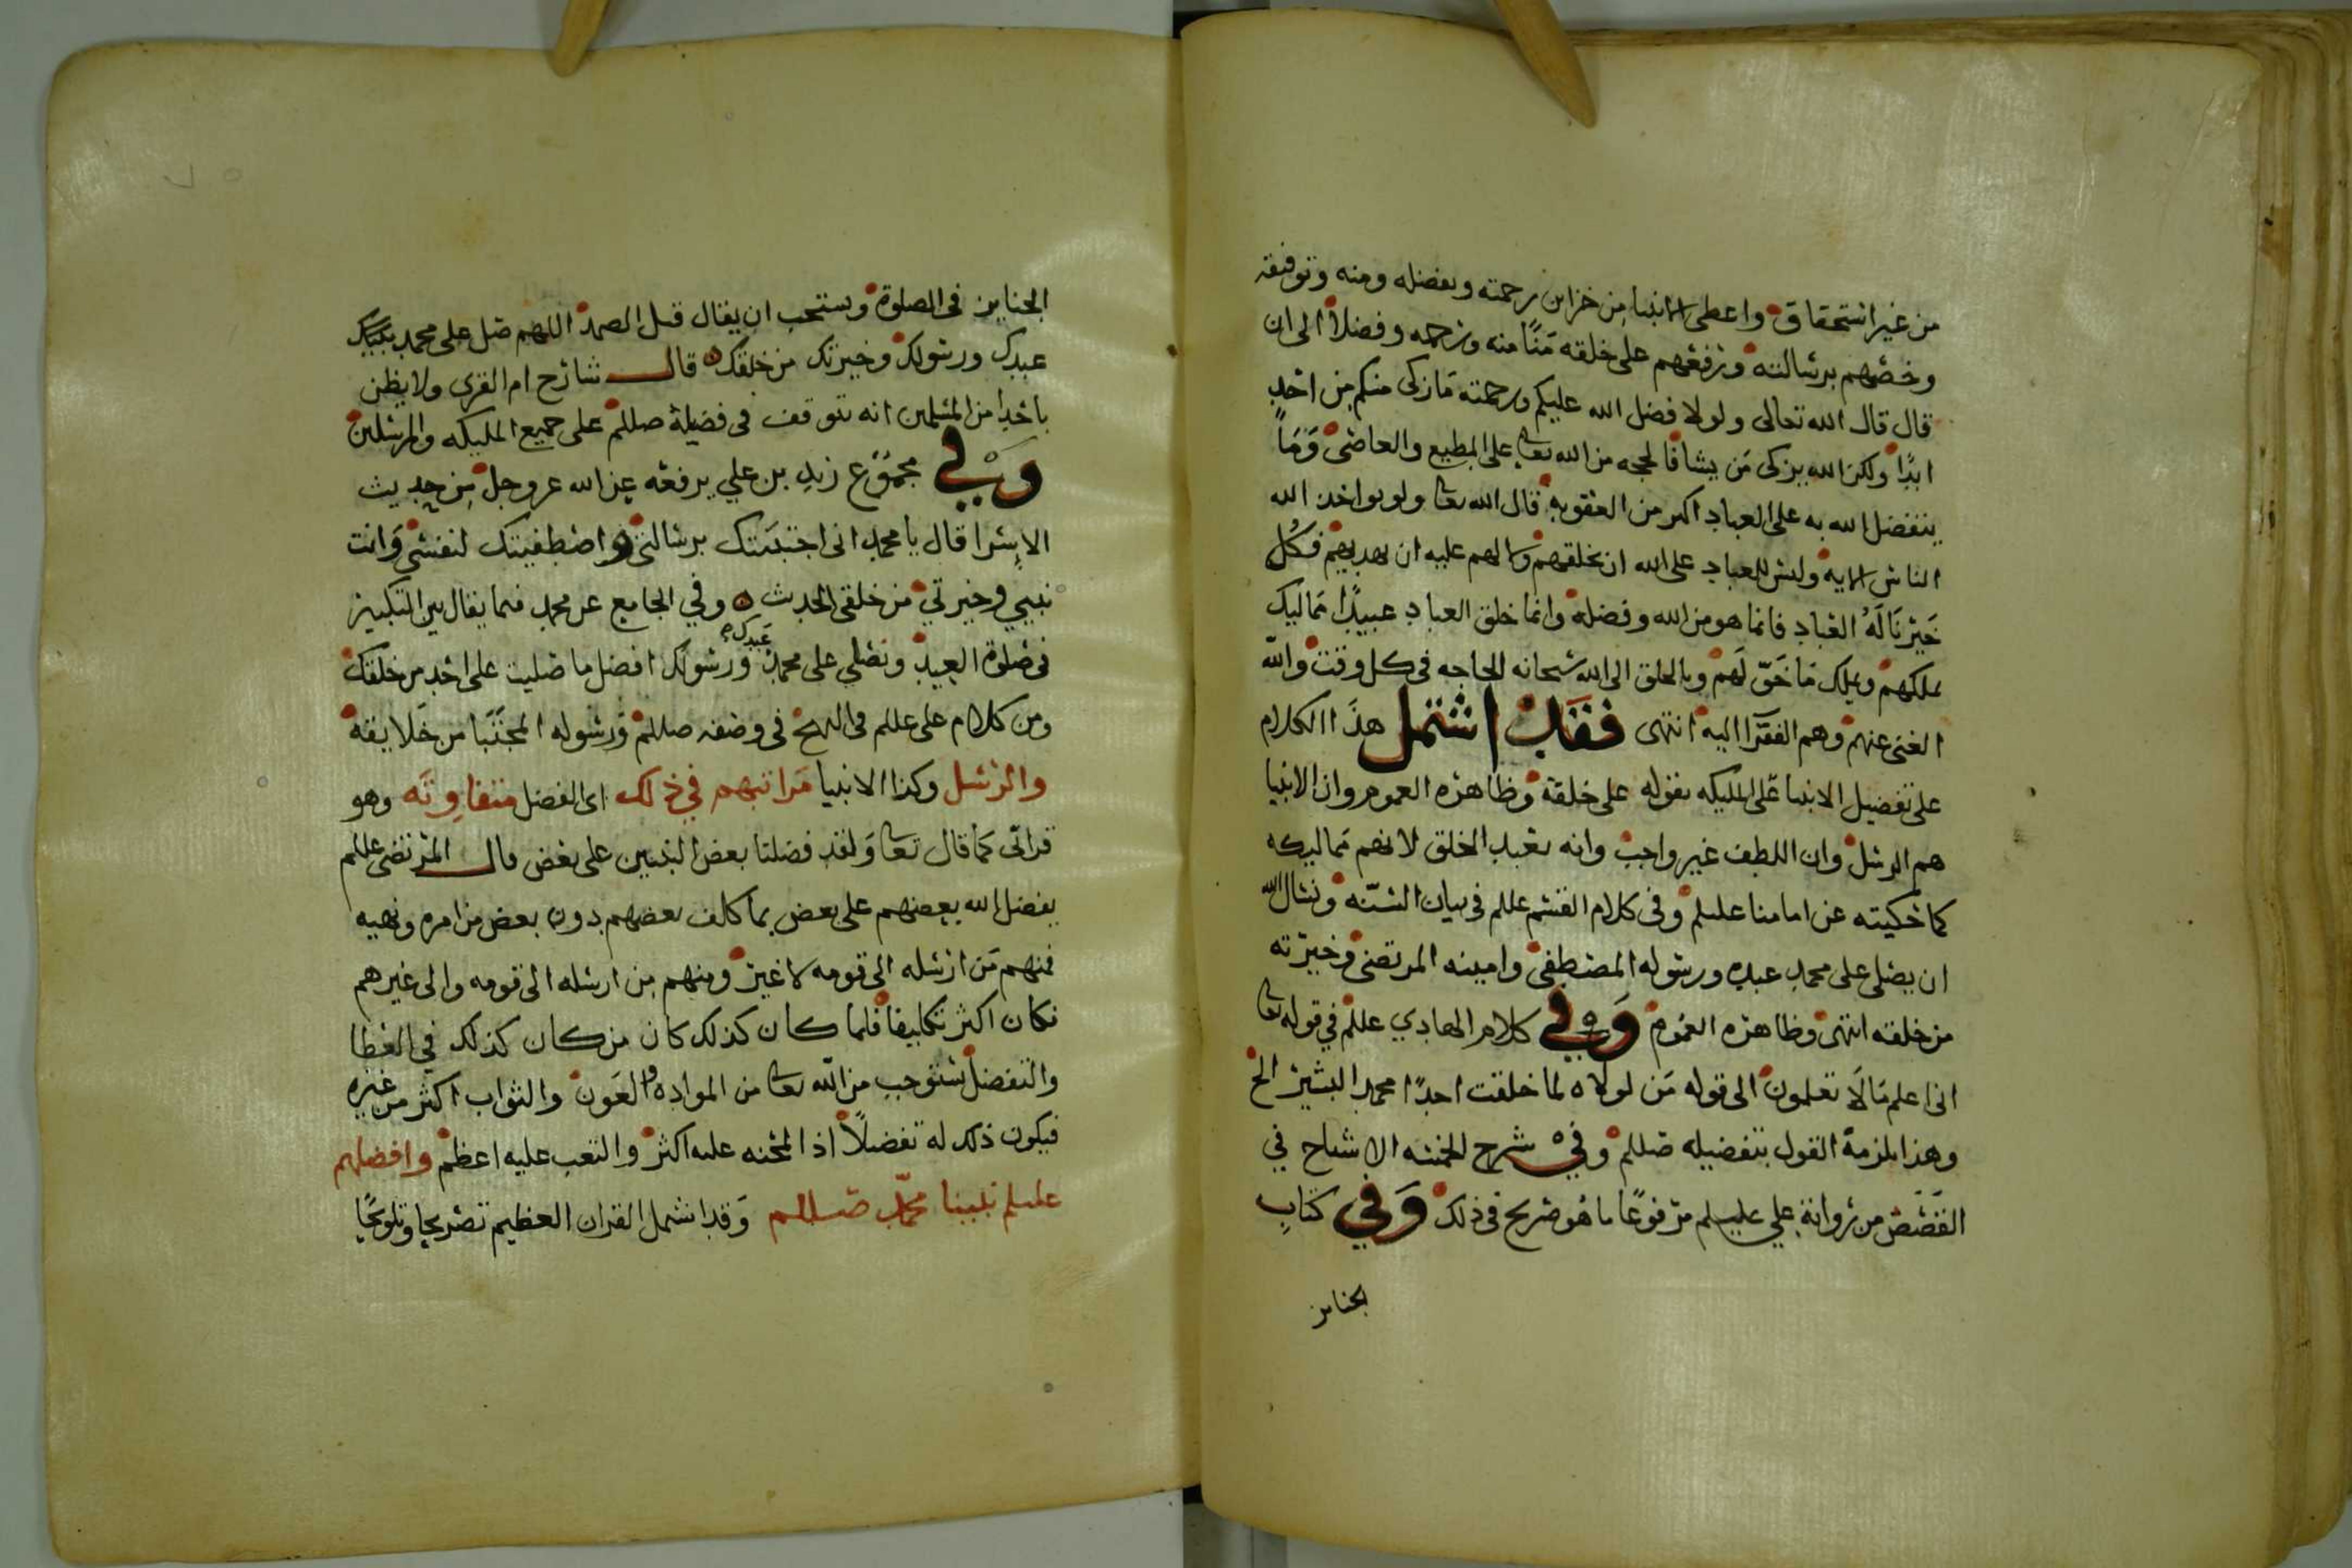 من غير استحقاق واعطى الانبيا من خزاين رحمته وبفضله ومنه وتوفيقه
وخصهم برسالته ورفعهم على خلقه منا منه ورحمه وفضلا الى ان
قال قال الله تعالى ولولا فضل الله عليكم ورحمته ما زكى منكم من احد
ابدا ولكن الله يزكى من يشا فالحجه من الله تعا على المطيع والعاصى وما
يتفضل الله به على العباد اكبر من العقوبه قال الله تعا ولو يواخذ الله
الناس الايه وليس للعباد على الله ان يخلقهم ولا لهم عليه ان يهديهم فكل
خير ناله العباد فانما هو من الله وفضله وانما خلق العباد عبيدا مماليك
يملكهم ويملك ما حق لهم وبالخلق الى الله سبحانه الحاجه فى كل وقت والله
الغنى عنهم وهم الفقرا اليه انتهى فقد اشتمل هذا الكلام
على تفضيل الانبيا على المليكه بقوله على خلقه وظاهره العموم وان الانبيا
هم الرسل وان اللطف غير واجب وانه تعبد الخلق لانهم مماليكه
كما حكيته عن امامنا عليلم وفى كلام القسم عللم فى بيان السنه ونسال الله
ان يصلى على محمد عبده ورسوله المصطفى وامينه المرتضى وخيرته
من خلقه انتهى وظاهره العموم وفي كلام الهادي عللم في قوله تعا
انى اعلم ما لا تعلمون الى قوله من لولاه لما خلقت احدا محمد البشير الخ
وهذا يلزمه القول بتفضيله صللم وفي شرح الخمسه الاشباح في
القصص من رواية علي عليلم مرفوعا ما هو صريح فى ذلك وفي كتاب
الجنايز
الجنايز فى الصلوة ويستحب ان يقال قبل الصمد اللهم صل على محمد نبيك
عبدك ورسولك وخيرتك من خلقك قال شارح ام القرى ولا يظن
باحد من المسلمين انه يتوقف فى فضيلة صللم على جميع المليكه والمرسلين
وفي مجموع زيد بن علي يرفعه عن الله عز وجل من حديث
الاسرا قال يا محمد انى اجتبيتك برسالتى واصطفيتك لنفسى وانت
نبيي وخيرتي من خلقى الحديث وفي الجامع عن محمد فيما يقال بين التكبير
فى صلوة العيد وتصلي على محمد عبدك ورسولك افضل ما صليت على احد من خلقك
ومن كلام على عللم فى النهج فى وصفه صللم ورسوله المجتبا من خلايقه
والرسل وكذا الانبيا مراتبهم في ذلك اى الفضل متفاوته وهو
قراتى كما قال تعا ولقد فضلنا بعض النبيين على بعض قال المرتضى عللم
يفضل الله بعضهم على بعض بما كلف بعضهم دون بعض من امره ونهيه
فمنهم من ارسله الى قومه لا غير ومنهم من ارسله الى قومه والى غيرهم
فكان اكثر تكليفا فلما كان كذلك كان من كان كذلك في العطا
والتفضل يستوجب من الله تعا من المواده والعون والثواب اكثر من غيره
فيكون ذلك له تفضلا اذ المحنه عليه اكثر والتعب عليه اعظم وافضلهم
عليلم نبينا محمد صللم وقد اشتمل القران العظيم تصريحا وتلويحا